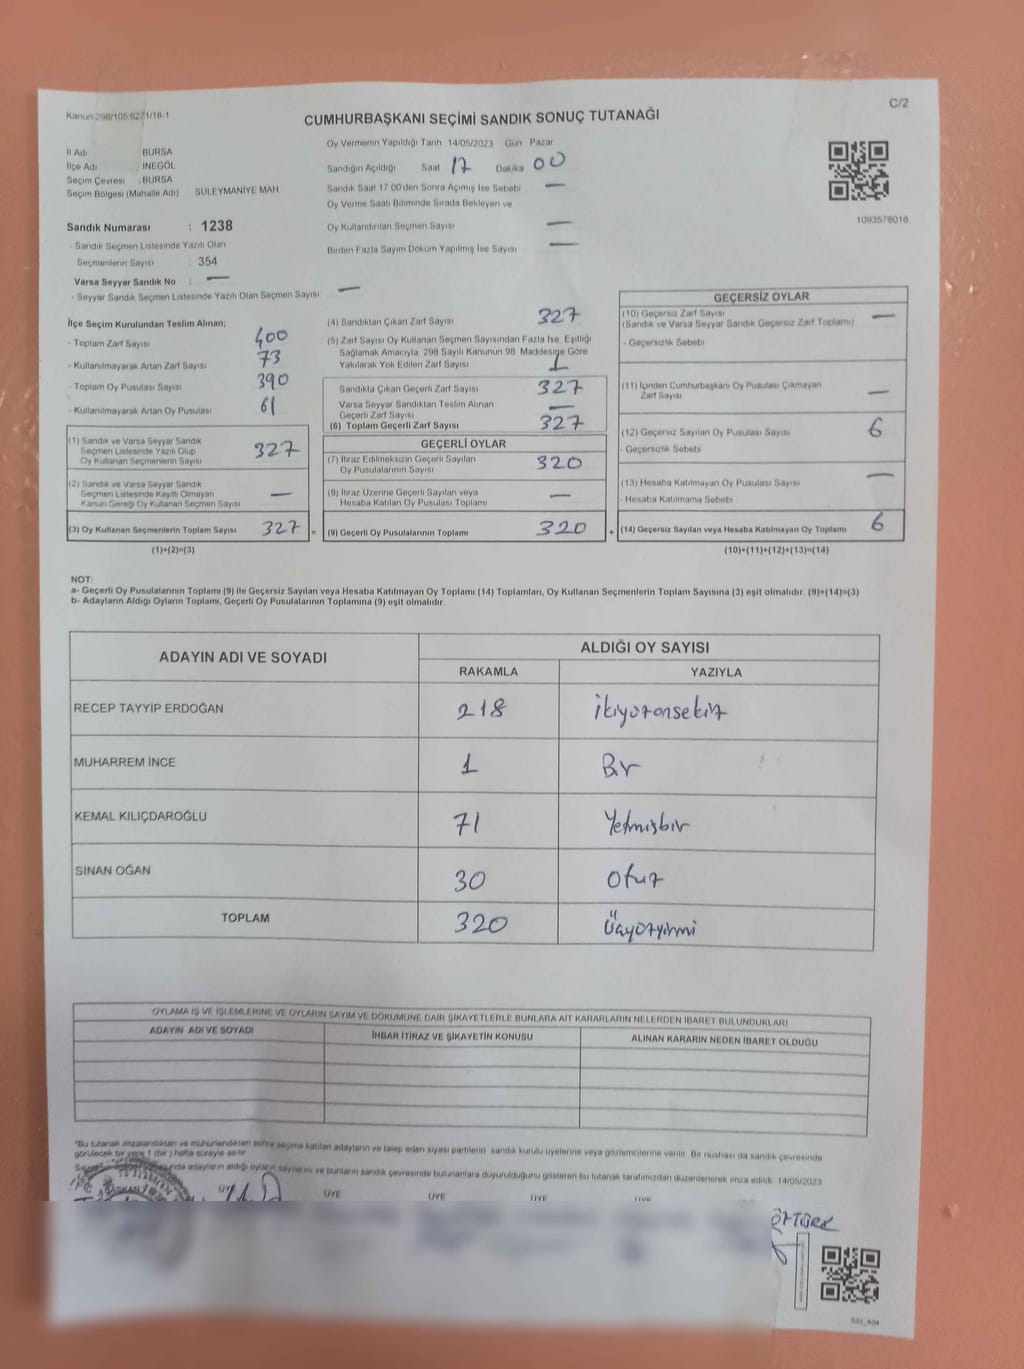 C/2
Kanun 298/105.627/1/18-1
CUMHURBAŞKANI SEÇİMİ SANDIK SONUÇ TUTANAĞI
İl Adı : BURSA
İlçe Adı : İNEGÖL
Seçim Çevresi : BURSA
Seçim Bölgesi (Mahalle Adı) SÜLEYMANİYE MAH
Sandık Numarası : 1238
- Sandık Seçmen Listesinde Yazılı Olan
Seçmenlerin Sayısı : 354
Varsa Seyyar Sandık No : —
- Seyyar Sandık Seçmen Listesinde Yazılı Olan Seçmen Sayısı —
Oy Vermenin Yapıldığı Tarih 14/05/2023 Gün Pazar
Sandığın Açıldığı Saat 17 Dakika 00
Sandık Saat 17 00'den Sonra Açılmış İse Sebebi —
Oy Verme Saati Bitiminde Sırada Bekleyen ve
Oy Kullandırılan Seçmen Sayısı —
Birden Fazla Sayım Döküm Yapılmış İse Sayısı —
1093578016
İlçe Seçim Kurulundan Teslim Alınan;
- Toplam Zarf Sayısı 400
- Kullanılmayarak Artan Zarf Sayısı 73
- Toplam Oy Pusulası Sayısı 390
- Kullanılmayarak Artan Oy Pusulası 61
(1) Sandık ve Varsa Seyyar Sandık
Seçmen Listesinde Yazılı Olup
Oy Kullanan Seçmenlerin Sayısı 327
(2) Sandık ve Varsa Seyyar Sandık
Seçmen Listesinde Kayıtlı Olmayan
Kanun Gereği Oy Kullanan Seçmen Sayısı —
(3) Oy Kullanan Seçmenlerin Toplam Sayısı 327 =
(1)+(2)=(3)
(4) Sandıktan Çıkan Zarf Sayısı 327
(5) Zarf Sayısı Oy Kullanan Seçmen Sayısından Fazla İse, Eşitliği
Sağlamak Amacıyla, 298 Sayılı Kanunun 98. Maddesine Göre
Yakılarak Yok Edilen Zarf Sayısı 1
Sandıkta Çıkan Geçerli Zarf Sayısı 327
Varsa Seyyar Sandıktan Teslim Alınan
Geçerli Zarf Sayısı —
(6) Toplam Geçerli Zarf Sayısı 327
GEÇERLİ OYLAR
(7) İtiraz Edilmeksizin Geçerli Sayılan
Oy Pusulalarının Sayısı 320
(8) İtiraz Üzerine Geçerli Sayılan veya
Hesaba Katılan Oy Pusulası Toplamı —
(9) Geçerli Oy Pusulalarının Toplamı 320 +
GEÇERSİZ OYLAR
(10) Geçersiz Zarf Sayısı —
(Sandık ve Varsa Seyyar Sandık Geçersiz Zarf Toplamı)
- Geçersizlik Sebebi
(11) İçinden Cumhurbaşkanı Oy Pusulası Çıkmayan
Zarf Sayısı —
(12) Geçersiz Sayılan Oy Pusulası Sayısı 6
- Geçersizlik Sebebi
(13) Hesaba Katılmayan Oy Pusulası Sayısı —
- Hesaba Katılmama Sebebi
(14) Geçersiz Sayılan veya Hesaba Katılmayan Oy Toplamı 6
(10)+(11)+(12)+(13)=(14)
NOT:
a- Geçerli Oy Pusulalarının Toplamı (9) ile Geçersiz Sayılan veya Hesaba Katılmayan Oy Toplamı (14) Toplamları, Oy Kullanan Seçmenlerin Toplam Sayısına (3) eşit olmalıdır. (9)+(14)=(3)
b- Adayların Aldığı Oyların Toplamı, Geçerli Oy Pusulalarının Toplamına (9) eşit olmalıdır.
ADAYIN ADI VE SOYADI
ALDIĞI OY SAYISI
RAKAMLA YAZIYLA
RECEP TAYYİP ERDOĞAN 218 ikiyüzonsekiz
MUHARREM İNCE 1 Bir
KEMAL KILIÇDAROĞLU 71 Yetmişbir
SİNAN OĞAN 30 Otuz
TOPLAM 320 Üçyüzyirmi
OYLAMA İŞ VE İŞLEMLERİNE VE OYLARIN SAYIM VE DÖKÜMÜNE DAİR ŞİKAYETLERLE BUNLARA AİT KARARLARIN NELERDEN İBARET BULUNDUKLARI
ADAYIN ADI VE SOYADI
İHBAR İTİRAZ VE ŞİKAYETİN KONUSU
ALINAN KARARIN NEDEN İBARET OLDUĞU
*Bu tutanak imzalandıktan ve mühürlendikten sonra seçime katılan adayların ve talep eden siyasi partilerin sandık kurulu üyelerine veya gözlemcilerine verilir. Bir nüshası da sandık çevresinde
görülecek bir yere 1 (bir) hafta süreyle asılır
adayların aldığı oyların sayılarını ve bunların sandık çevresinde bulunanlara duyurulduğunu gösteren bu tutanak tarafımızdan düzenlenerek imza edildi. 14/05/2023
ÜYE ÜYE ÜYE ÜYE ÜYE
ÖZTÜRK